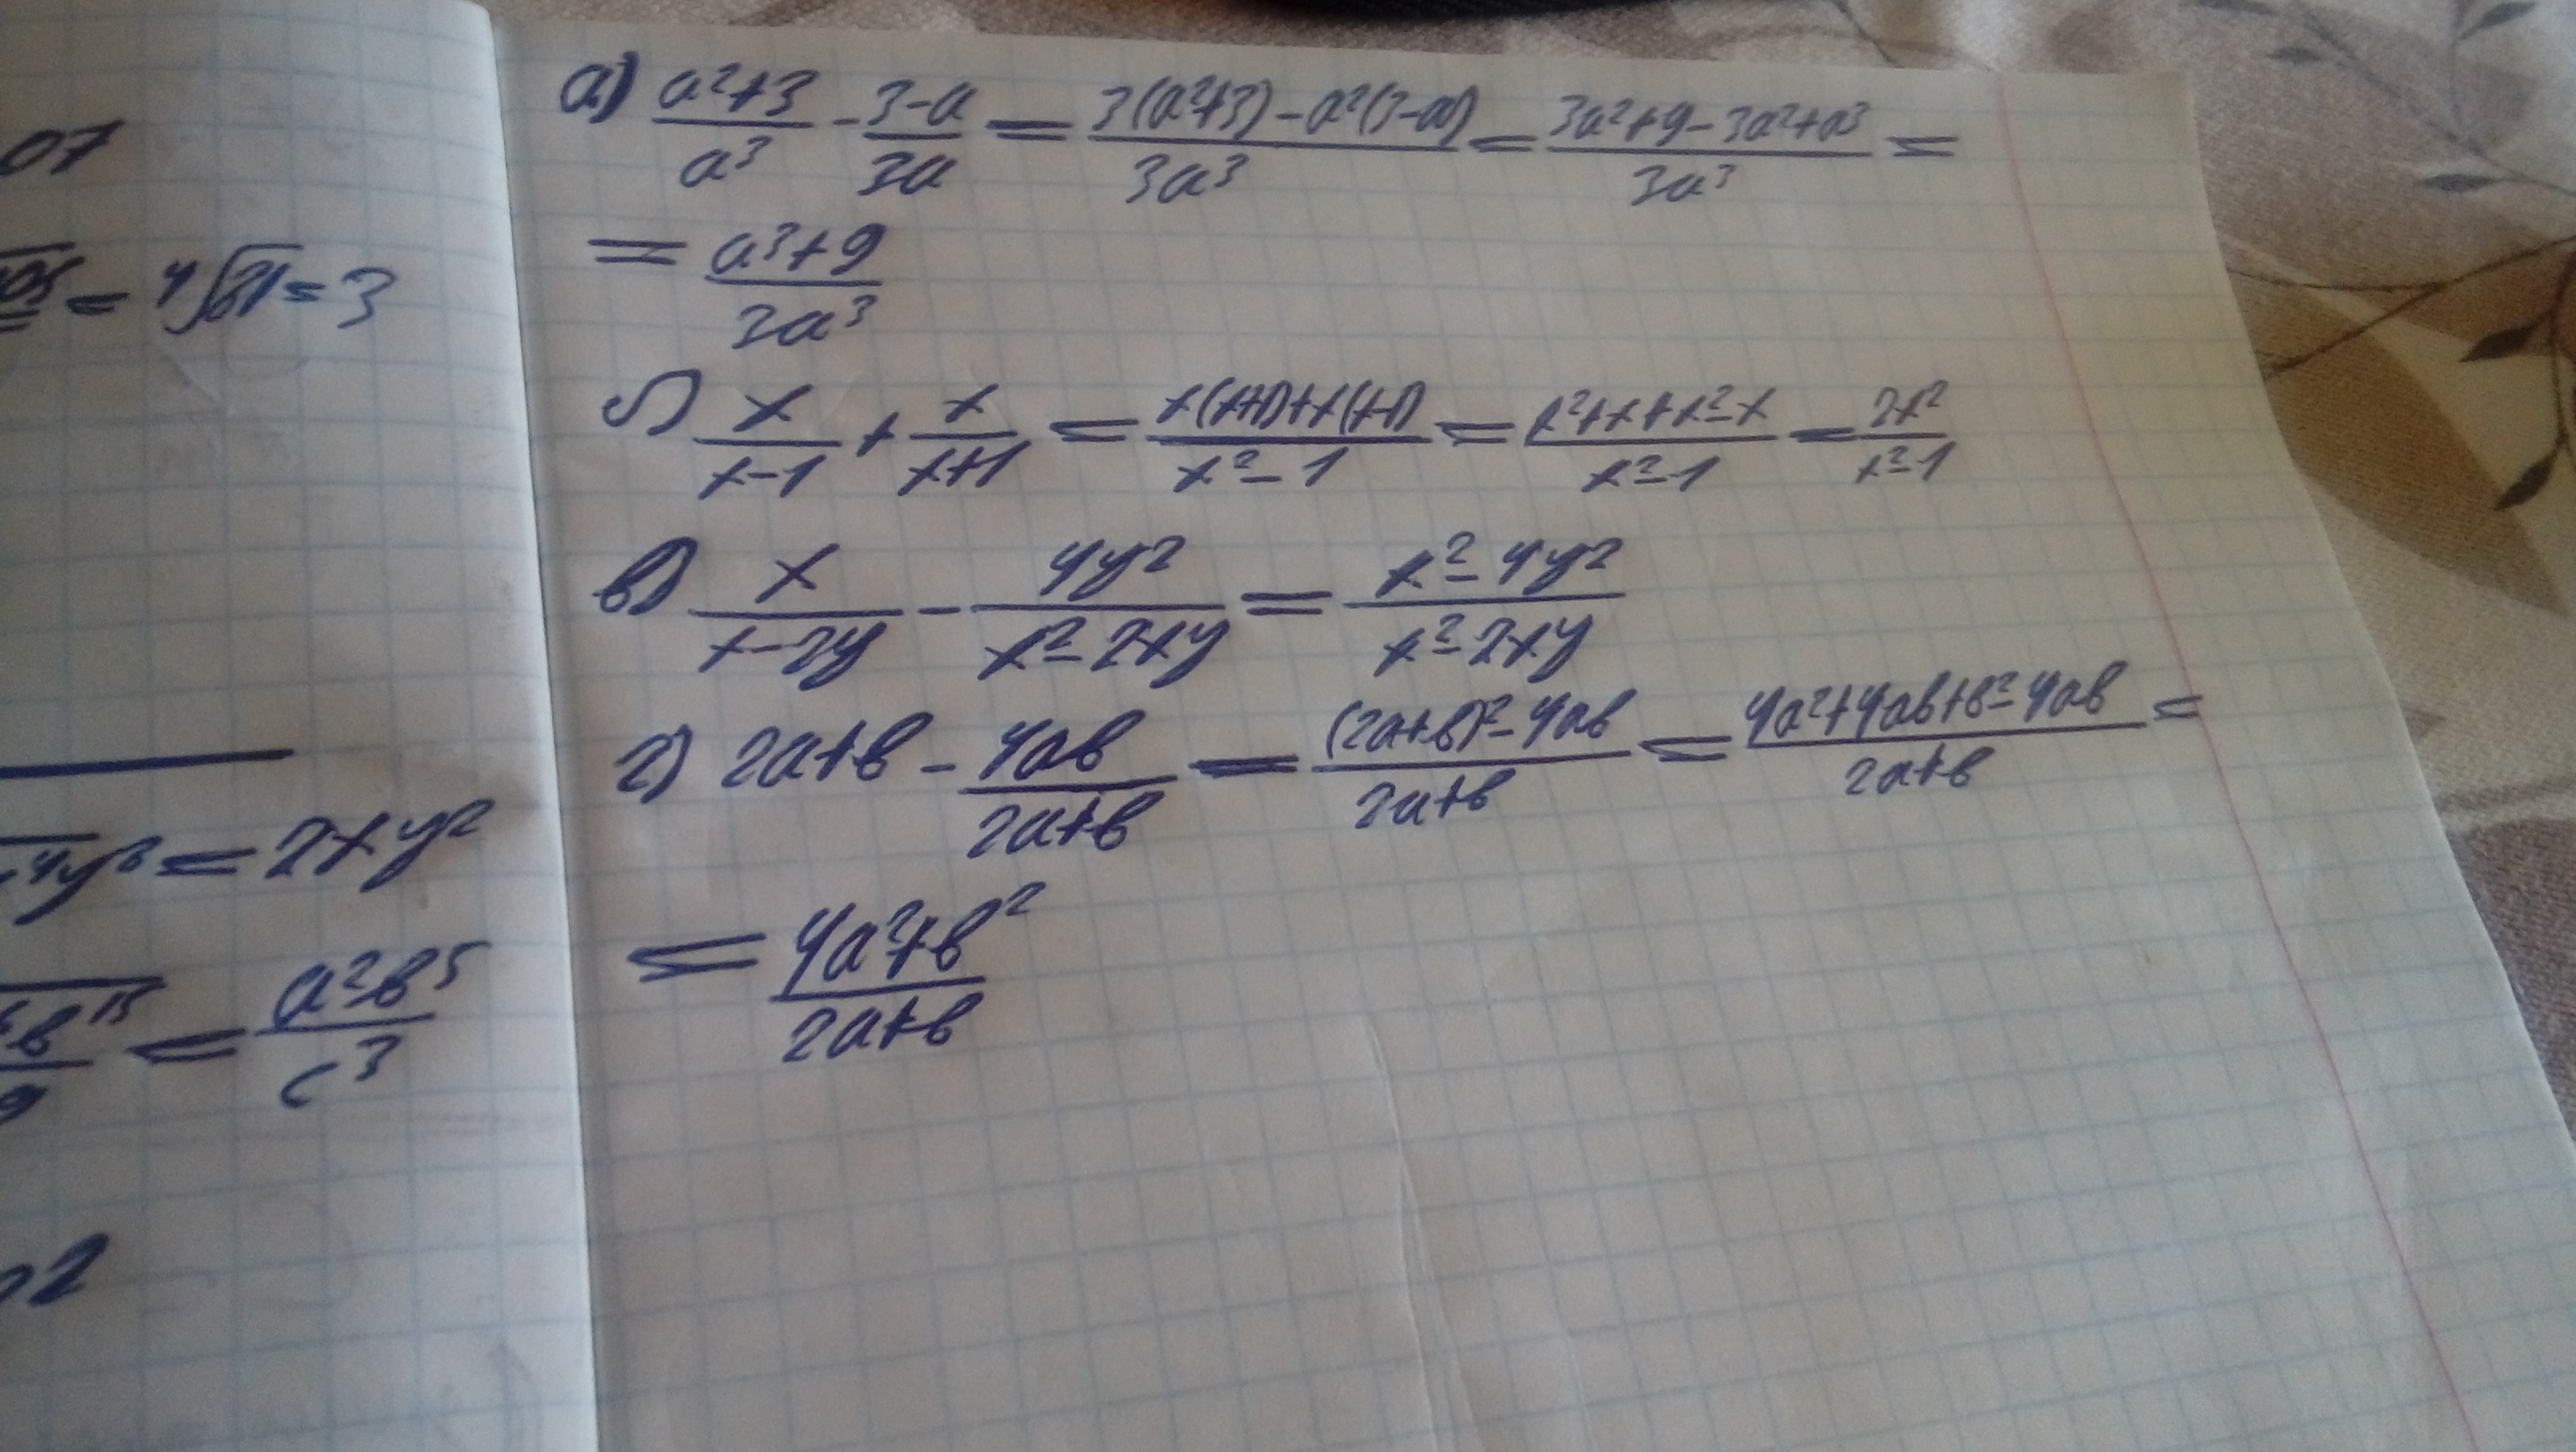 07
= ⁴√81 = 3
4y⁸ = 2xy²
b¹⁵/9 = a²b⁵/c³
2
а) (a²+3)/a³ - (3-a)/3a = (3(a²+3) - a²(3-a))/3a³ = (3a²+9-3a²+a³)/3a³ =
= (a³+9)/3a³
б) x/(x-1) + x/(x+1) = (x(x+1)+x(x-1))/(x²-1) = (x²+x+x²-x)/(x²-1) = 2x²/(x²-1)
в) x/(x-2y) - 4y²/(x²-2xy) = (x²-4y²)/(x²-2xy)
г) 2a+b - 4ab/(2a+b) = ((2a+b)²-4ab)/(2a+b) = (4a²+4ab+b²-4ab)/(2a+b) =
= (4a²+b²)/(2a+b)